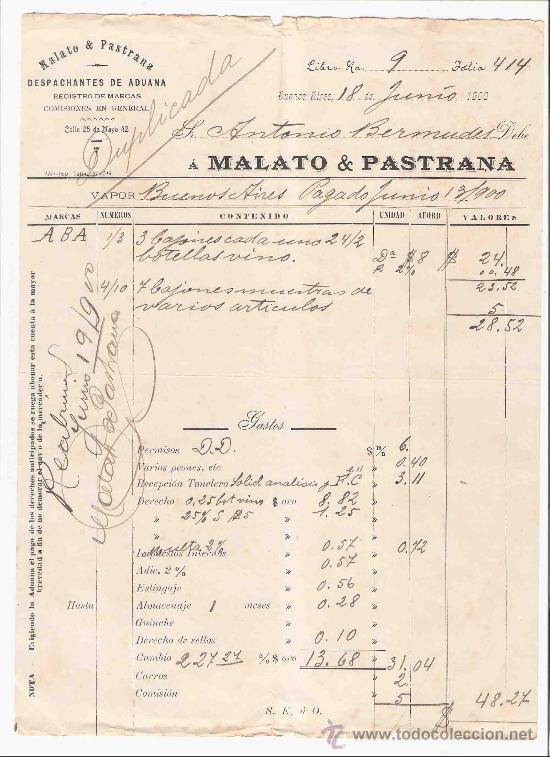 Malato & Pastrana
DESPACHANTES DE ADUANA
REGISTRO DE MARCAS
COMISIONES EN GENERAL
Calle 25 de Mayo 42
Duplicada
Libro No. 9 Folio 414
Buenos Aires, 18 de Junio 1900
Sr. Antonio Bermudes Debe
Á MALATO & PASTRANA
VAPOR Buenos Aires Pagado Junio 13/900
MARCAS NUMEROS CONTENIDO UNIDAD AFORO VALORES
ABA 1/3 3 cajones cada uno 24/2 botellas vino. Da $8 $ 24.
2% 00.48
23.52
4/10 7 cajones muestras de varios articulos 5
28.52
Recibimos
Junio 19/900
Malato & Pastrana
NOTA - Exigiendo la Aduana el pago de los derechos anticipados se ruega abonar esta cuenta á la mayor
brevedad á fin de no demorar el de la mercadería.
Gastos
Permisos D.D. $ m/n 6.
Varios peones, etc » 0.40
Recepción Tonelero Solid analisis y F.C » 3.11
Derecho 0,25 bot vino $ oro 8.82
» 25% S 5 » 1.25
» 2% » 0.57
Impuestos Internos » 0.72
Adic. 2% » 0.57
Estingaje » 0.56
Hasta Almacenaje 1 meses » 0.28
Guinche »
Derecho de sellos » 0.10
Cambio 227 27 % $ oro 13.68 » 31.04
Carros » 2.
Comisión » 5 48.27
S. E. ú O. $
todocoleccion
www.todocoleccion.net